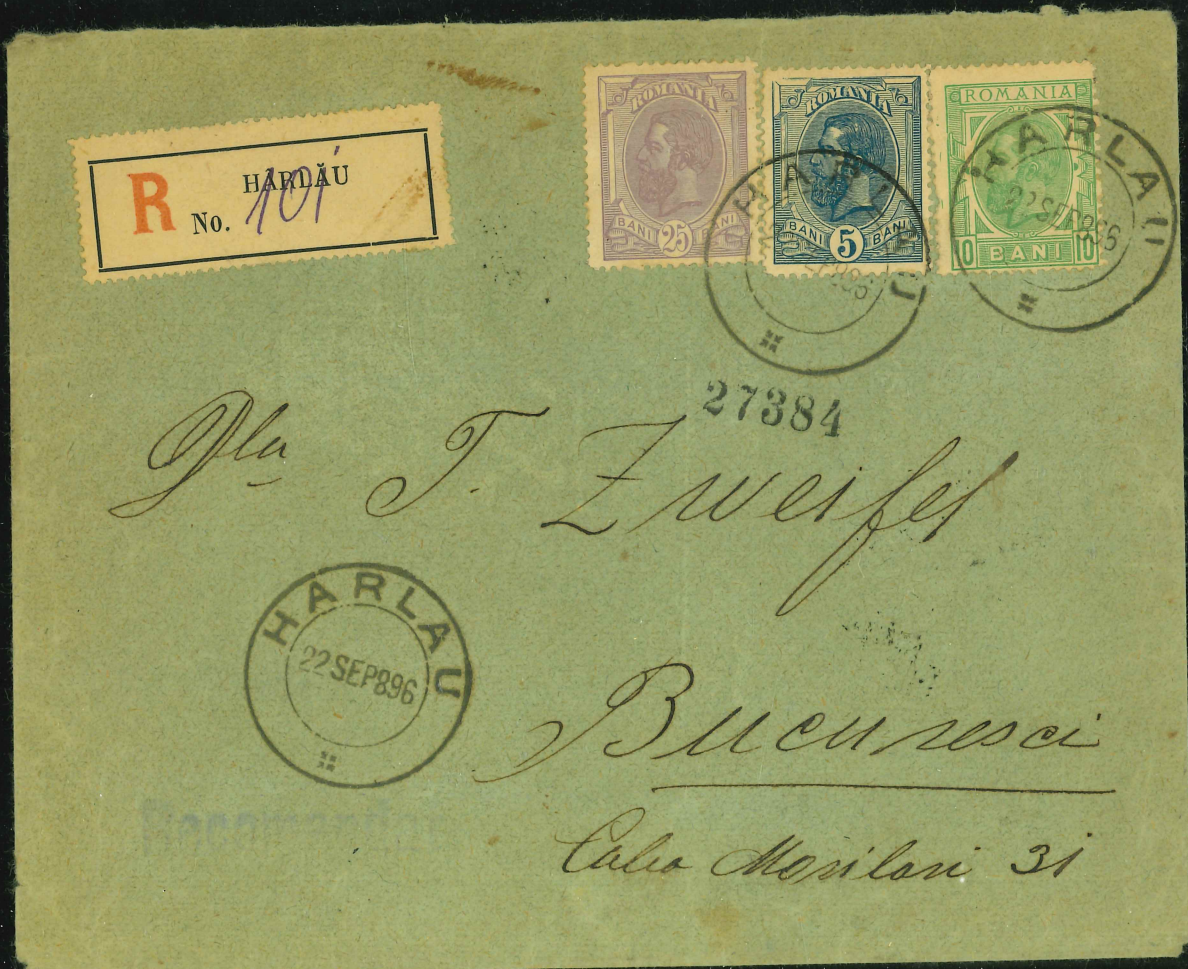 HÂRLĂU
R No. 101
ROMANIA
BANI 25 BANI
ROMANIA
BANI 5 BANI
ROMANIA
10 BANI 10
HARLAU
SEP 896
HARLAU
22 SEP 896
27384
Dlu T. Zweifel
HARLAU
22 SEP 896
Bucuresci
Recomandat
Calea Mosilor 31